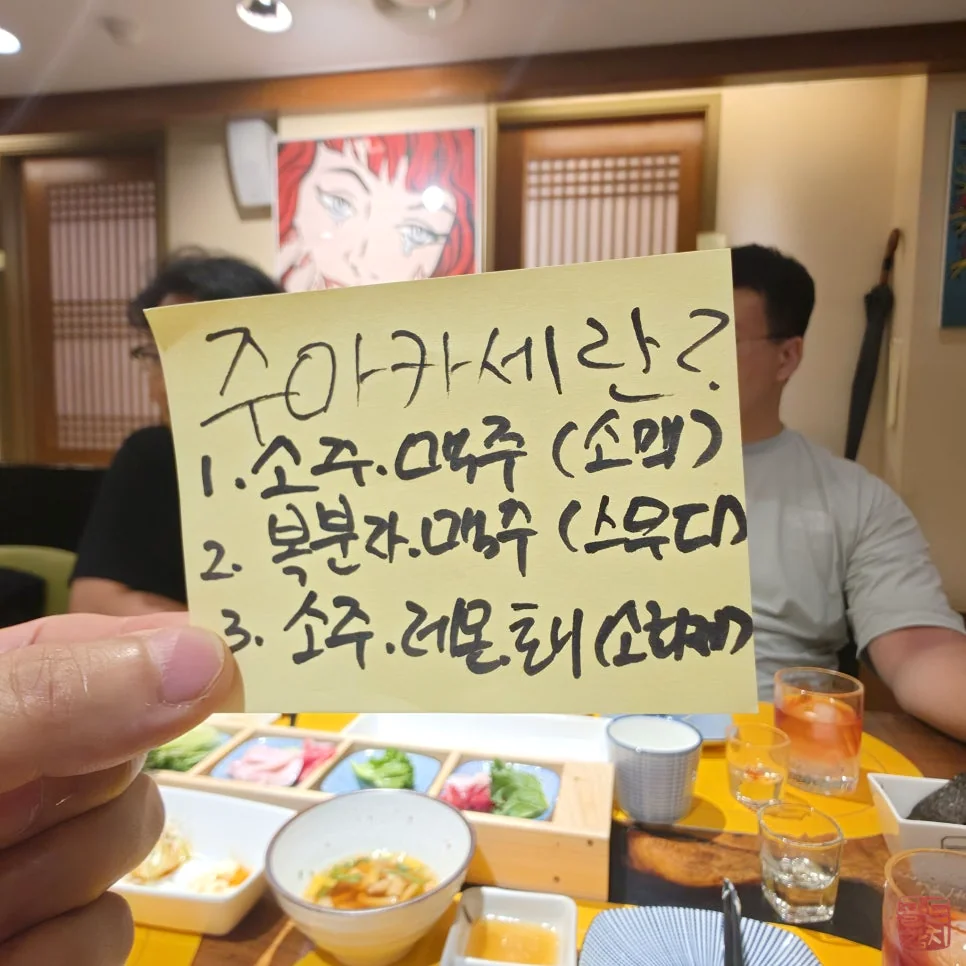 주아카세란?
1. 소주.맥주 (소맥)
2. 복분자.맥주 (스무디)
3. 소주.레몬.토니 (소화제)